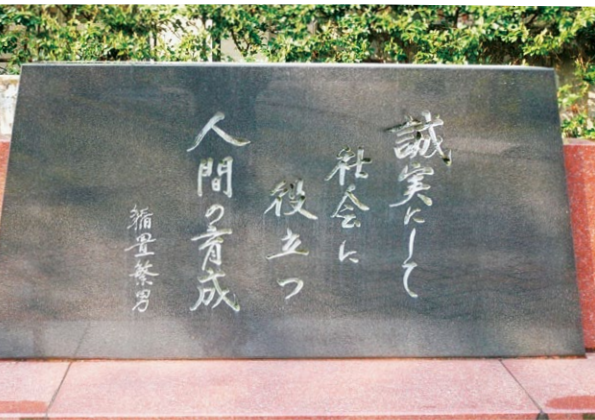 誠実にして
社会に
役立つ
人間の育成
稲置繁男